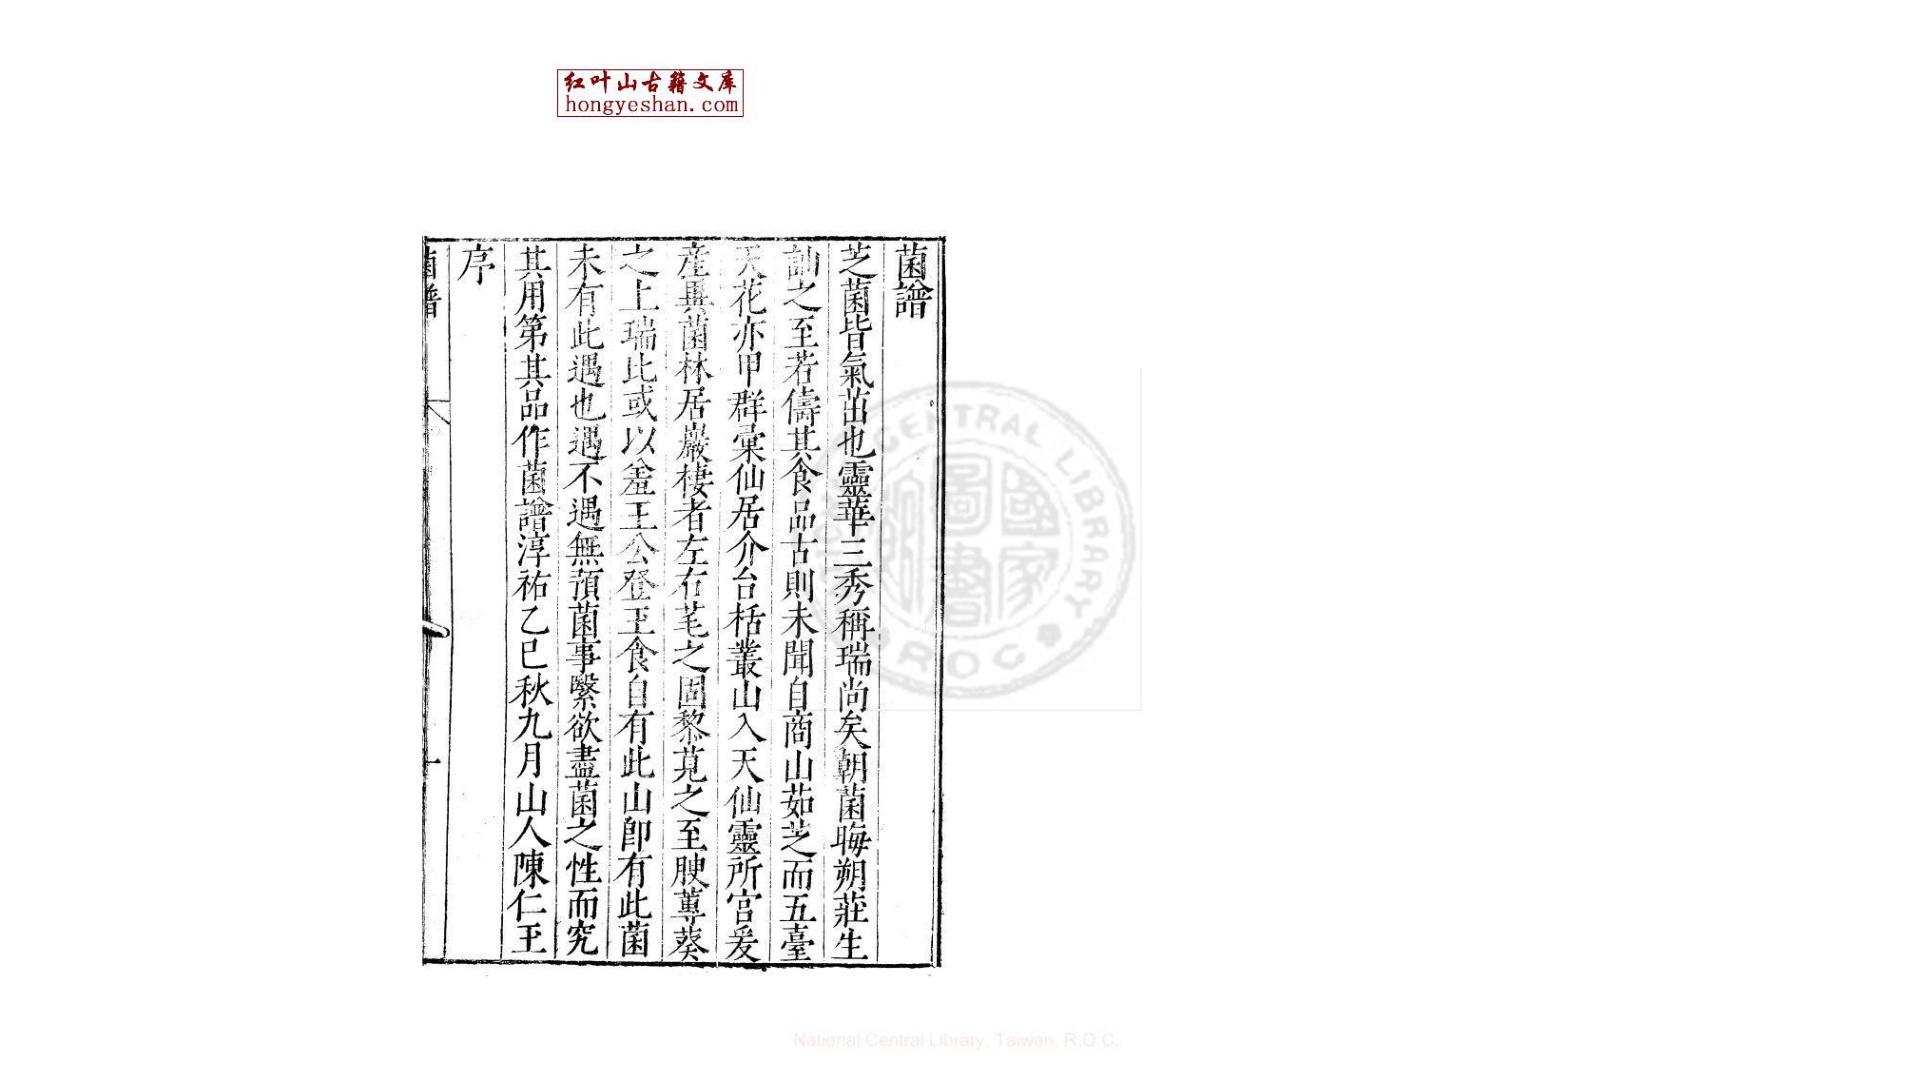 红叶山古籍文库
hongyeshan.com
菌譜
芝菌皆氣茁也靈華三秀稱瑞尚矣朝菌晦朔莊生
訕之至若儔其食品古則未聞自商山茹芝而五臺
天花亦甲群彚仙居介台栝叢山入天仙靈所宮爰
産異菌林居巖棲者左右芼之固黎莧之至腴蓴葵
之上瑞比或以羞王公登玉食自有此山卽有此菌
未有此遇也遇不遇無預菌事繄欲盡菌之性而究
其用第其品作菌譜淳祐乙巳秋九月山人陳仁玉
序
菌譜
一
NATIONAL CENTRAL LIBRARY
國家圖書館
R O C
National Central Library, Taiwan, R.O.C.